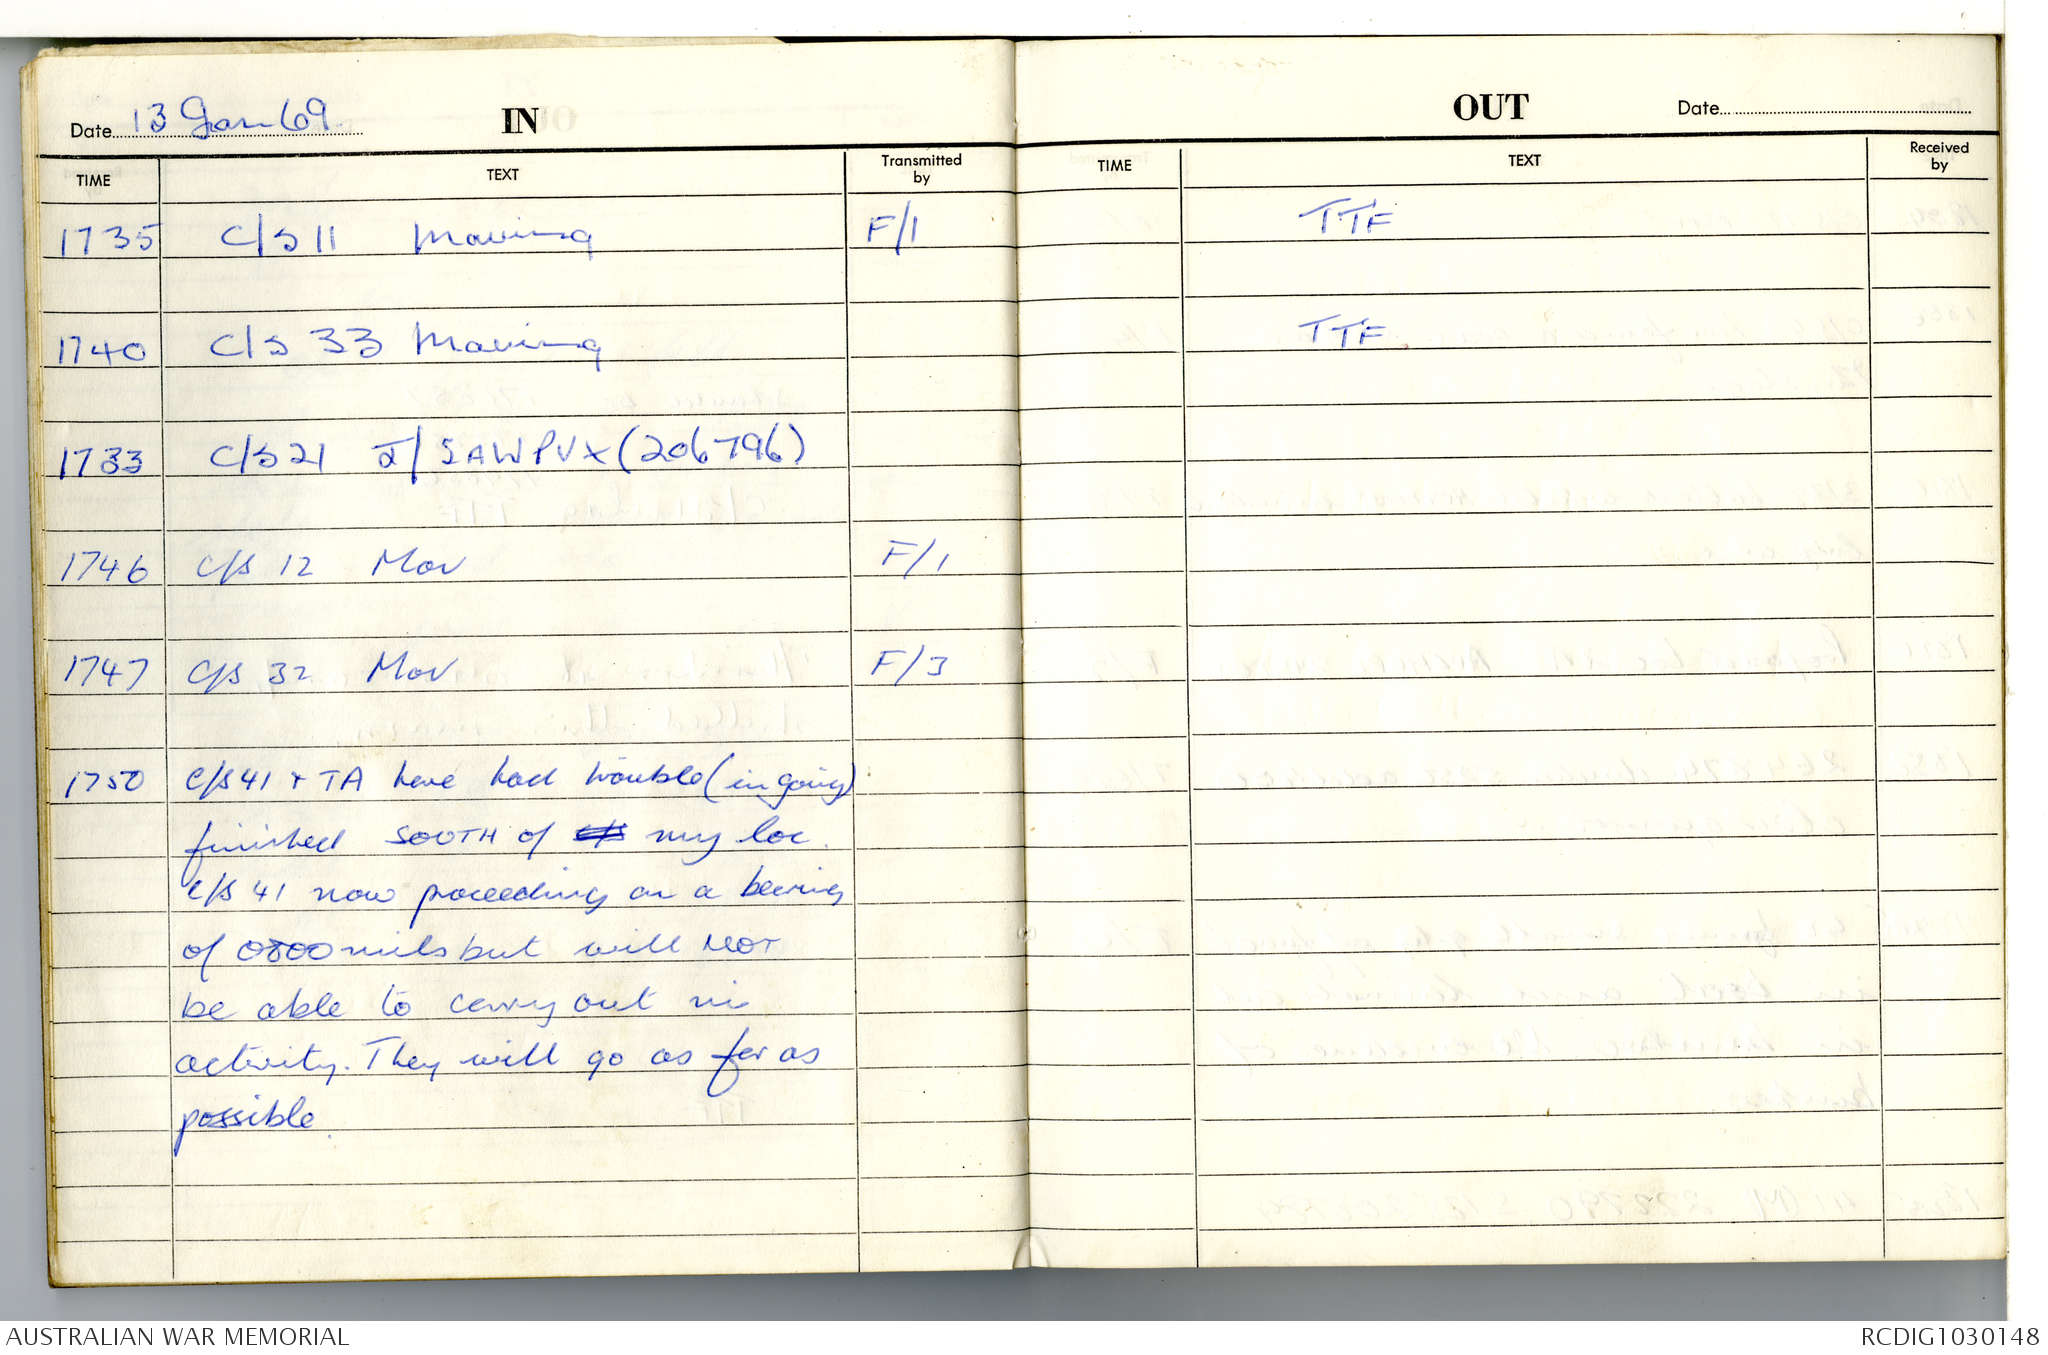 Date 13 Jan 69 IN
TIME TEXT Transmitted by
1735 C/S 11 Moving F/1
1740 C/S 33 Moving
1733 C/S 21 I/SAWPVX (206796)
1746 C/S 12 Mov F/1
1747 C/S 32 Mov F/3
1750 C/S 41 + TA have had trouble (in going)
finished SOUTH of C/S my loc.
C/S 41 now proceeding on a bearing
of 0800 mils but will NOT
be able to carry out
activity. They will go as far as
possible.
OUT Date
TIME TEXT Received by
TTF
TTF
AUSTRALIAN WAR MEMORIAL
RCDIG1030148